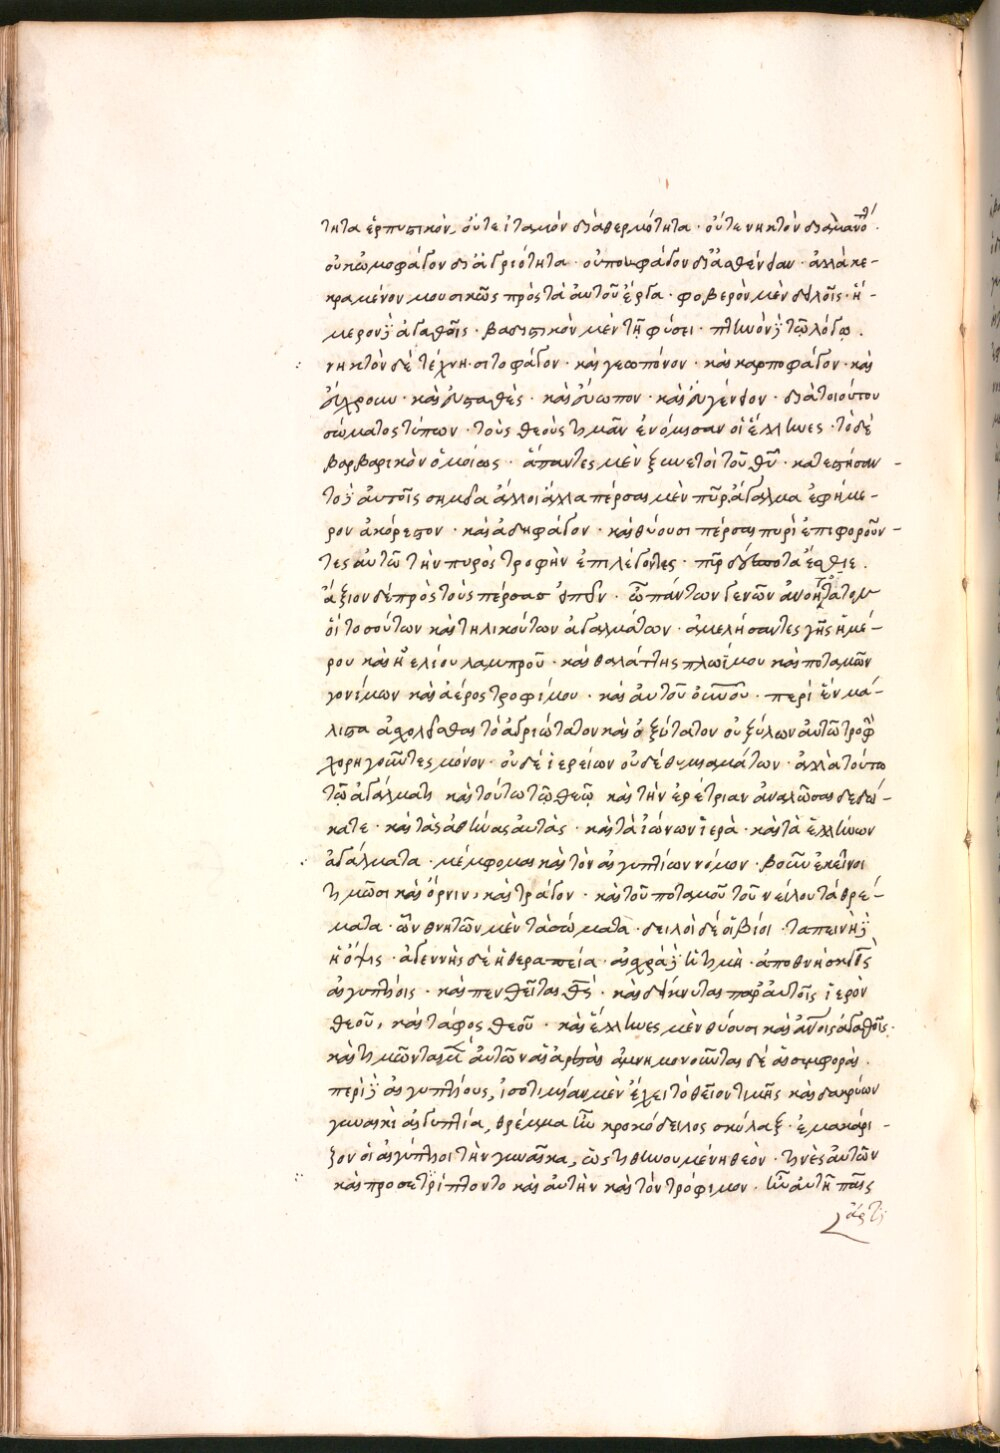 τητα ἑρπυστικὸν, οὔτε ἰταμὸν διὰ θερμότητα · οὔτε νηκτὸν διὰ μανότ ·
οὐκ ὠμοφάγον δι ἀγριότητα · οὐ ποιηφάγον δι ἀσθένειαν · ἀλλὰ κε-
κραμένον μουσικῶς πρὸς τὰ αὐτοῦ ἔργα · φοβερὸν μὲν δειλοῖς · ἥ-
μερον δὲ ἀγαθοῖς · βαδιστικὸν μὲν τῇ φύσει · πτηνὸν δὲ τῷ λόγῳ .
νηκτὸν δὲ τέχνη · σιτοφάγον · καὶ γεωπόνον · καὶ καρποφάγον · καὶ
εὔχρουν · καὶ εὐσταθὲς · καὶ εὐωπον · καὶ εὐγένειον · διὰ τοιούτου
σώματος τύπων · τοὺς θεοὺς τιμᾶν ἐνόμισαν οἱ ἕλληνες · τὸ δὲ
βαρβαρικὸν ὁμοίως · ἅπαντες μὲν ξυνετοὶ τοῦ θῦ · κατεστήσαν-
το δὲ αὐτοῖς σημεῖα ἄλλοι ἄλλα πέρσαι μὲν πῦρ ἄγαλμα ἐφήμε-
ρον ἀκόρεστον · καὶ ἀδηφάγον · καὶ θύουσι πέρσαι πυρὶ ἐπιφοροῦν-
τες αὐτῶ τὴν πυρὸς τροφὴν ἐπιλέγοντες · πῦρ δέσποτα ἔσθιε .
ἄξιον δὲ πρὸς τοὺς πέρσας εἰπεῖν · ὦ πάντων γενῶν ἀνοητότατον
οἳ τοσούτων καὶ τηλικούτων ἀγαλμάτων · ἀμελήσαντες γῆς ἡμέ-
ρου καὶ ἡλίου λαμπροῦ · καὶ θαλάττης πλωΐμου καὶ ποταμῶν
γονίμων καὶ ἀέρος τροφίμου · καὶ αὐτοῦ οὐνοῦ · περὶ ἓν μά-
λιστα ἀσχολεῖσθαι τὸ ἀγριώτατον καὶ ὀξύτατον οὐ ξύλων αὐτῶ τροφὴ
χορηγοῦντες μόνον · οὐδὲ ἱερείων οὐδὲ θυμιαμάτων · ἀλλὰ τούτω
τῷ ἀγάλματι καὶ τούτω τῷ θεῷ καὶ τὴν ἐρέτριαν ἀναλῶσαι δεδώ-
κατε · καὶ τὰς ἀθήνας αὐτὰς · καὶ τὰ ἰώνων ἱερὰ · καὶ τὰ ἑλλήνων
ἀγάλματα · μέμφομαι καὶ τὸν αἰγυπτίων νόμον · βοῦν ἐκεῖνοι
τιμῶσι καὶ ὄρνιν, καὶ τράγον · καὶ τοῦ ποταμοῦ τοῦ νείλου τὰ θρέ-
ματα · ὧν θνητῶν μὲν τὰ σώματα · δειλοὶ δὲ οἱ βίοι · ταπεινὴ δὲ
ἡ ὄψις · ἀγεννὴς δὲ ἡ θεραπεία · αἰσχρὰ δὲ ἡ τιμὴ · ἀποθνήσκει θς
αἰγυπτίοις · καὶ πενθεῖται θς · καὶ δείκνυται παρ αὐτοῖς ἱερὸν
θεοῦ, καὶ τάφος θεοῦ · καὶ ἕλληνες μὲν θύουσι καὶ ἀνοις ἀγαθοῖς ·
καὶ τιμῶνται μὲν αὐτῶν αἱ ἀρεταὶ ἀμνημονοῦνται δὲ αἱ συμφοραὶ .
περὶ δὲ αἰγυπτίους, ἰσοτιμίαν μὲν ἔχει τὸ θεῖον τιμῆς καὶ δακρύων
γυναικὶ αἰγυπτία, θρέμμα ἦν κροκόδειλος σκύλαξ · ἐμακάρι-
ζον οἱ αἰγύπτιοι τὴν γυναῖκα, ὡς τιθηνουμένη θεὸν · τινὲς αὐτῶν
καὶ προσετρίπτοντο καὶ αὐτὴν καὶ τὸν τρόφιμον · ἦν αὐτῆ παῖς
ἄρτι